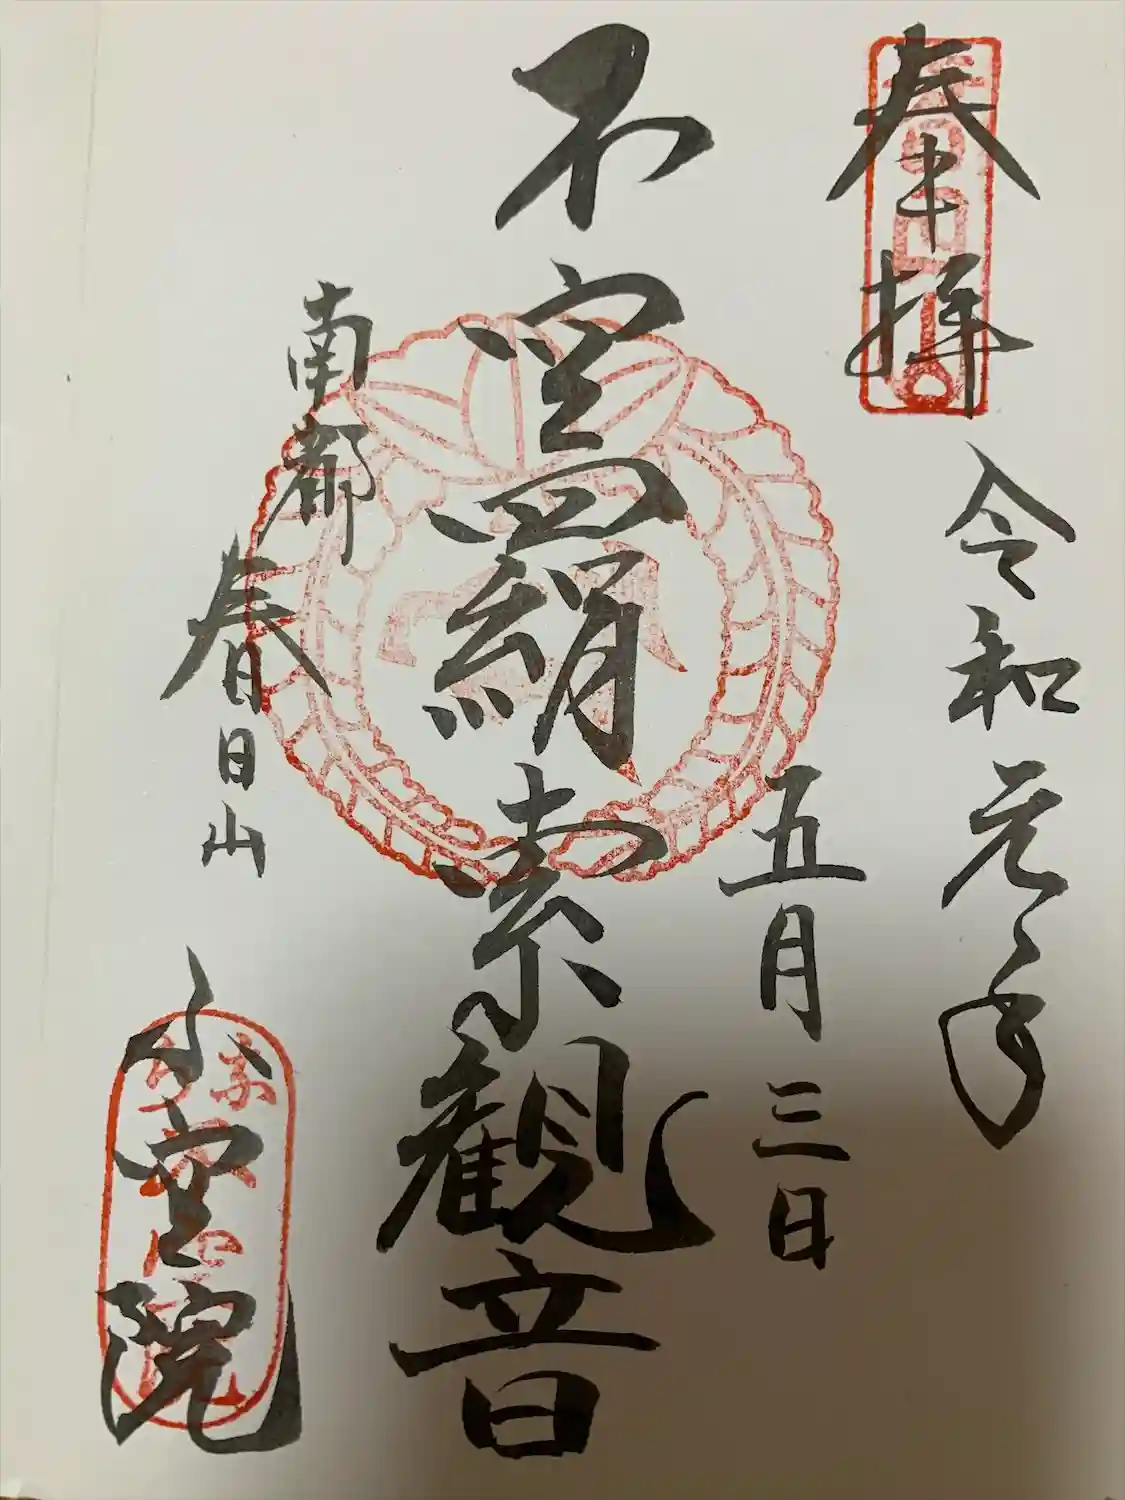 奉拝 令和元年
五月三日
不空羂索観音
南都 春日山
不空院